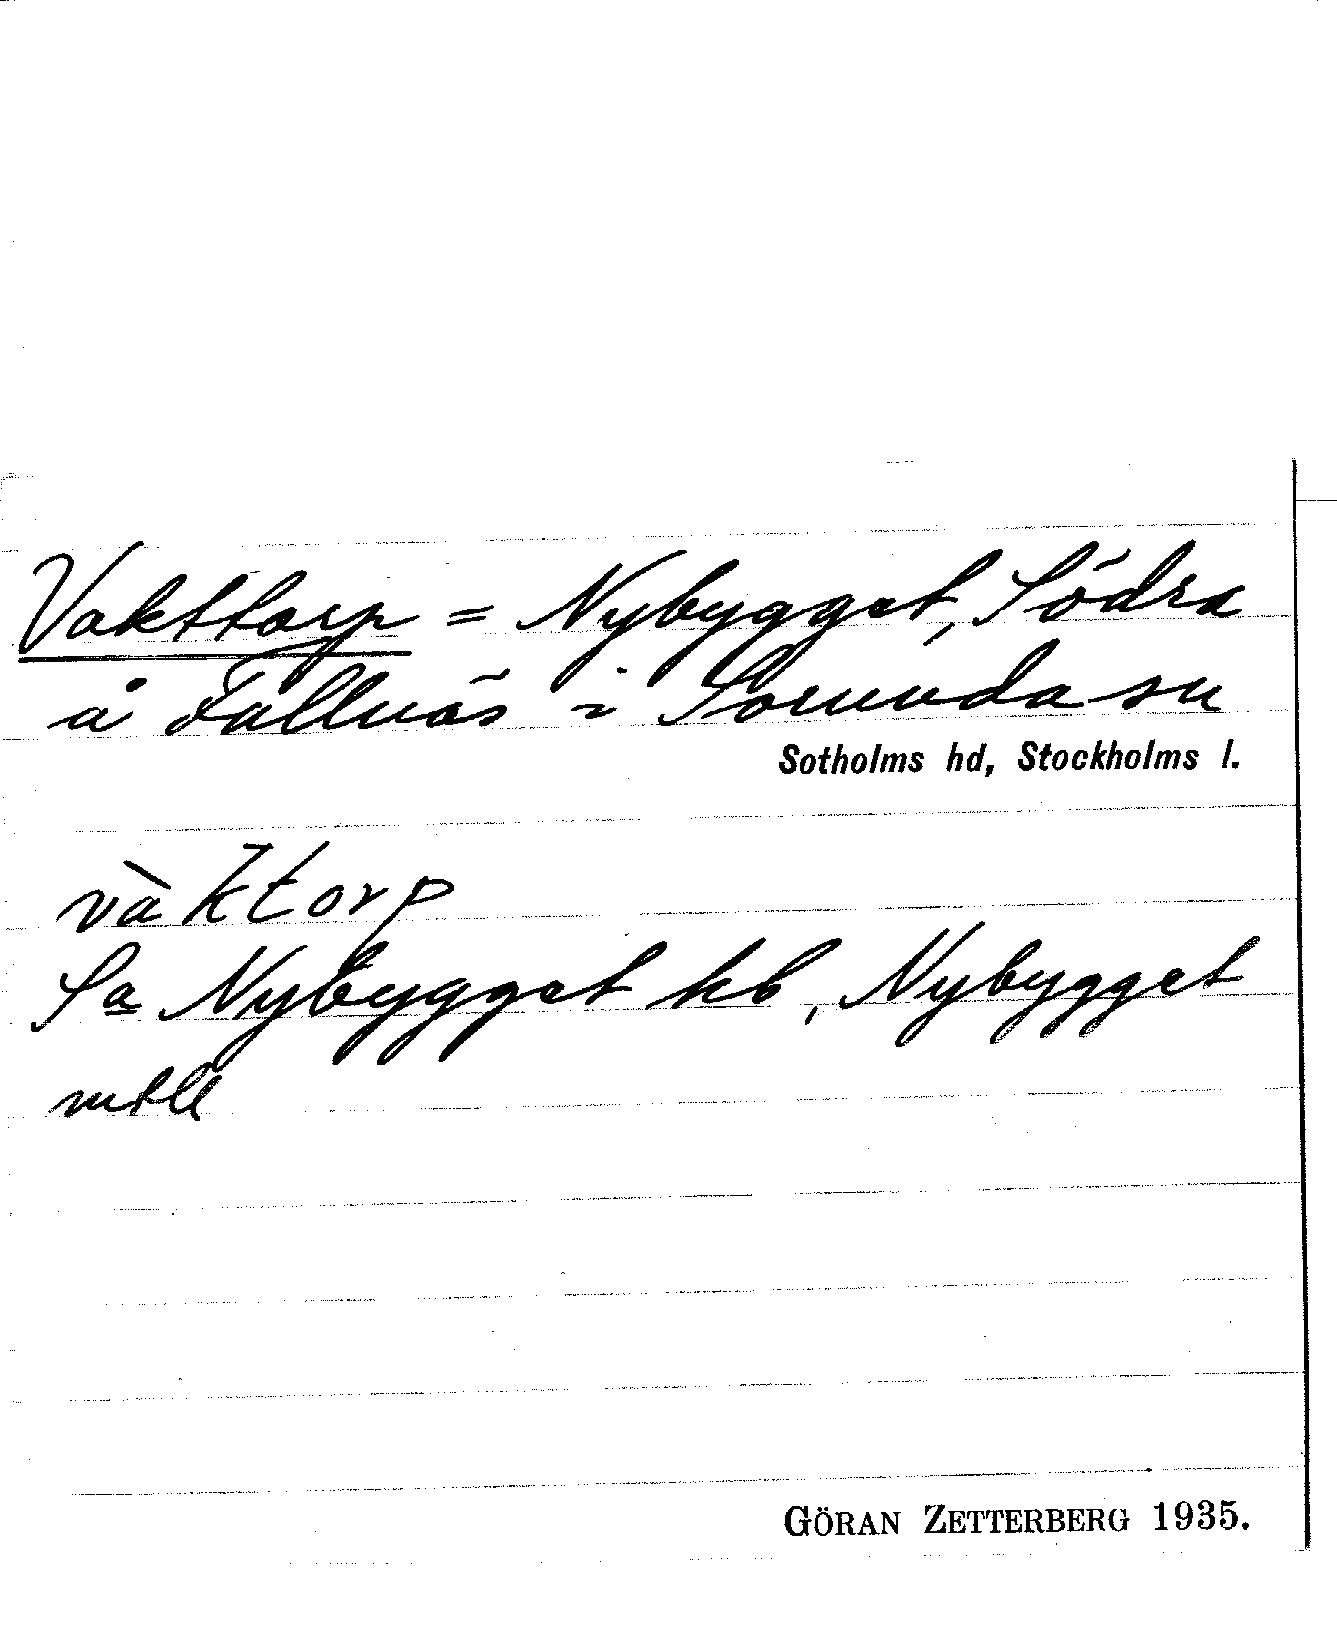 Vakttorp = Nybygget, Södra
å Fållnäs i Sorunda sn
Sotholms hd, Stockholms l.
vàktorp
Sa Nybygget kb, Nybygget
mtll
GÖRAN ZETTERBERG 1935.